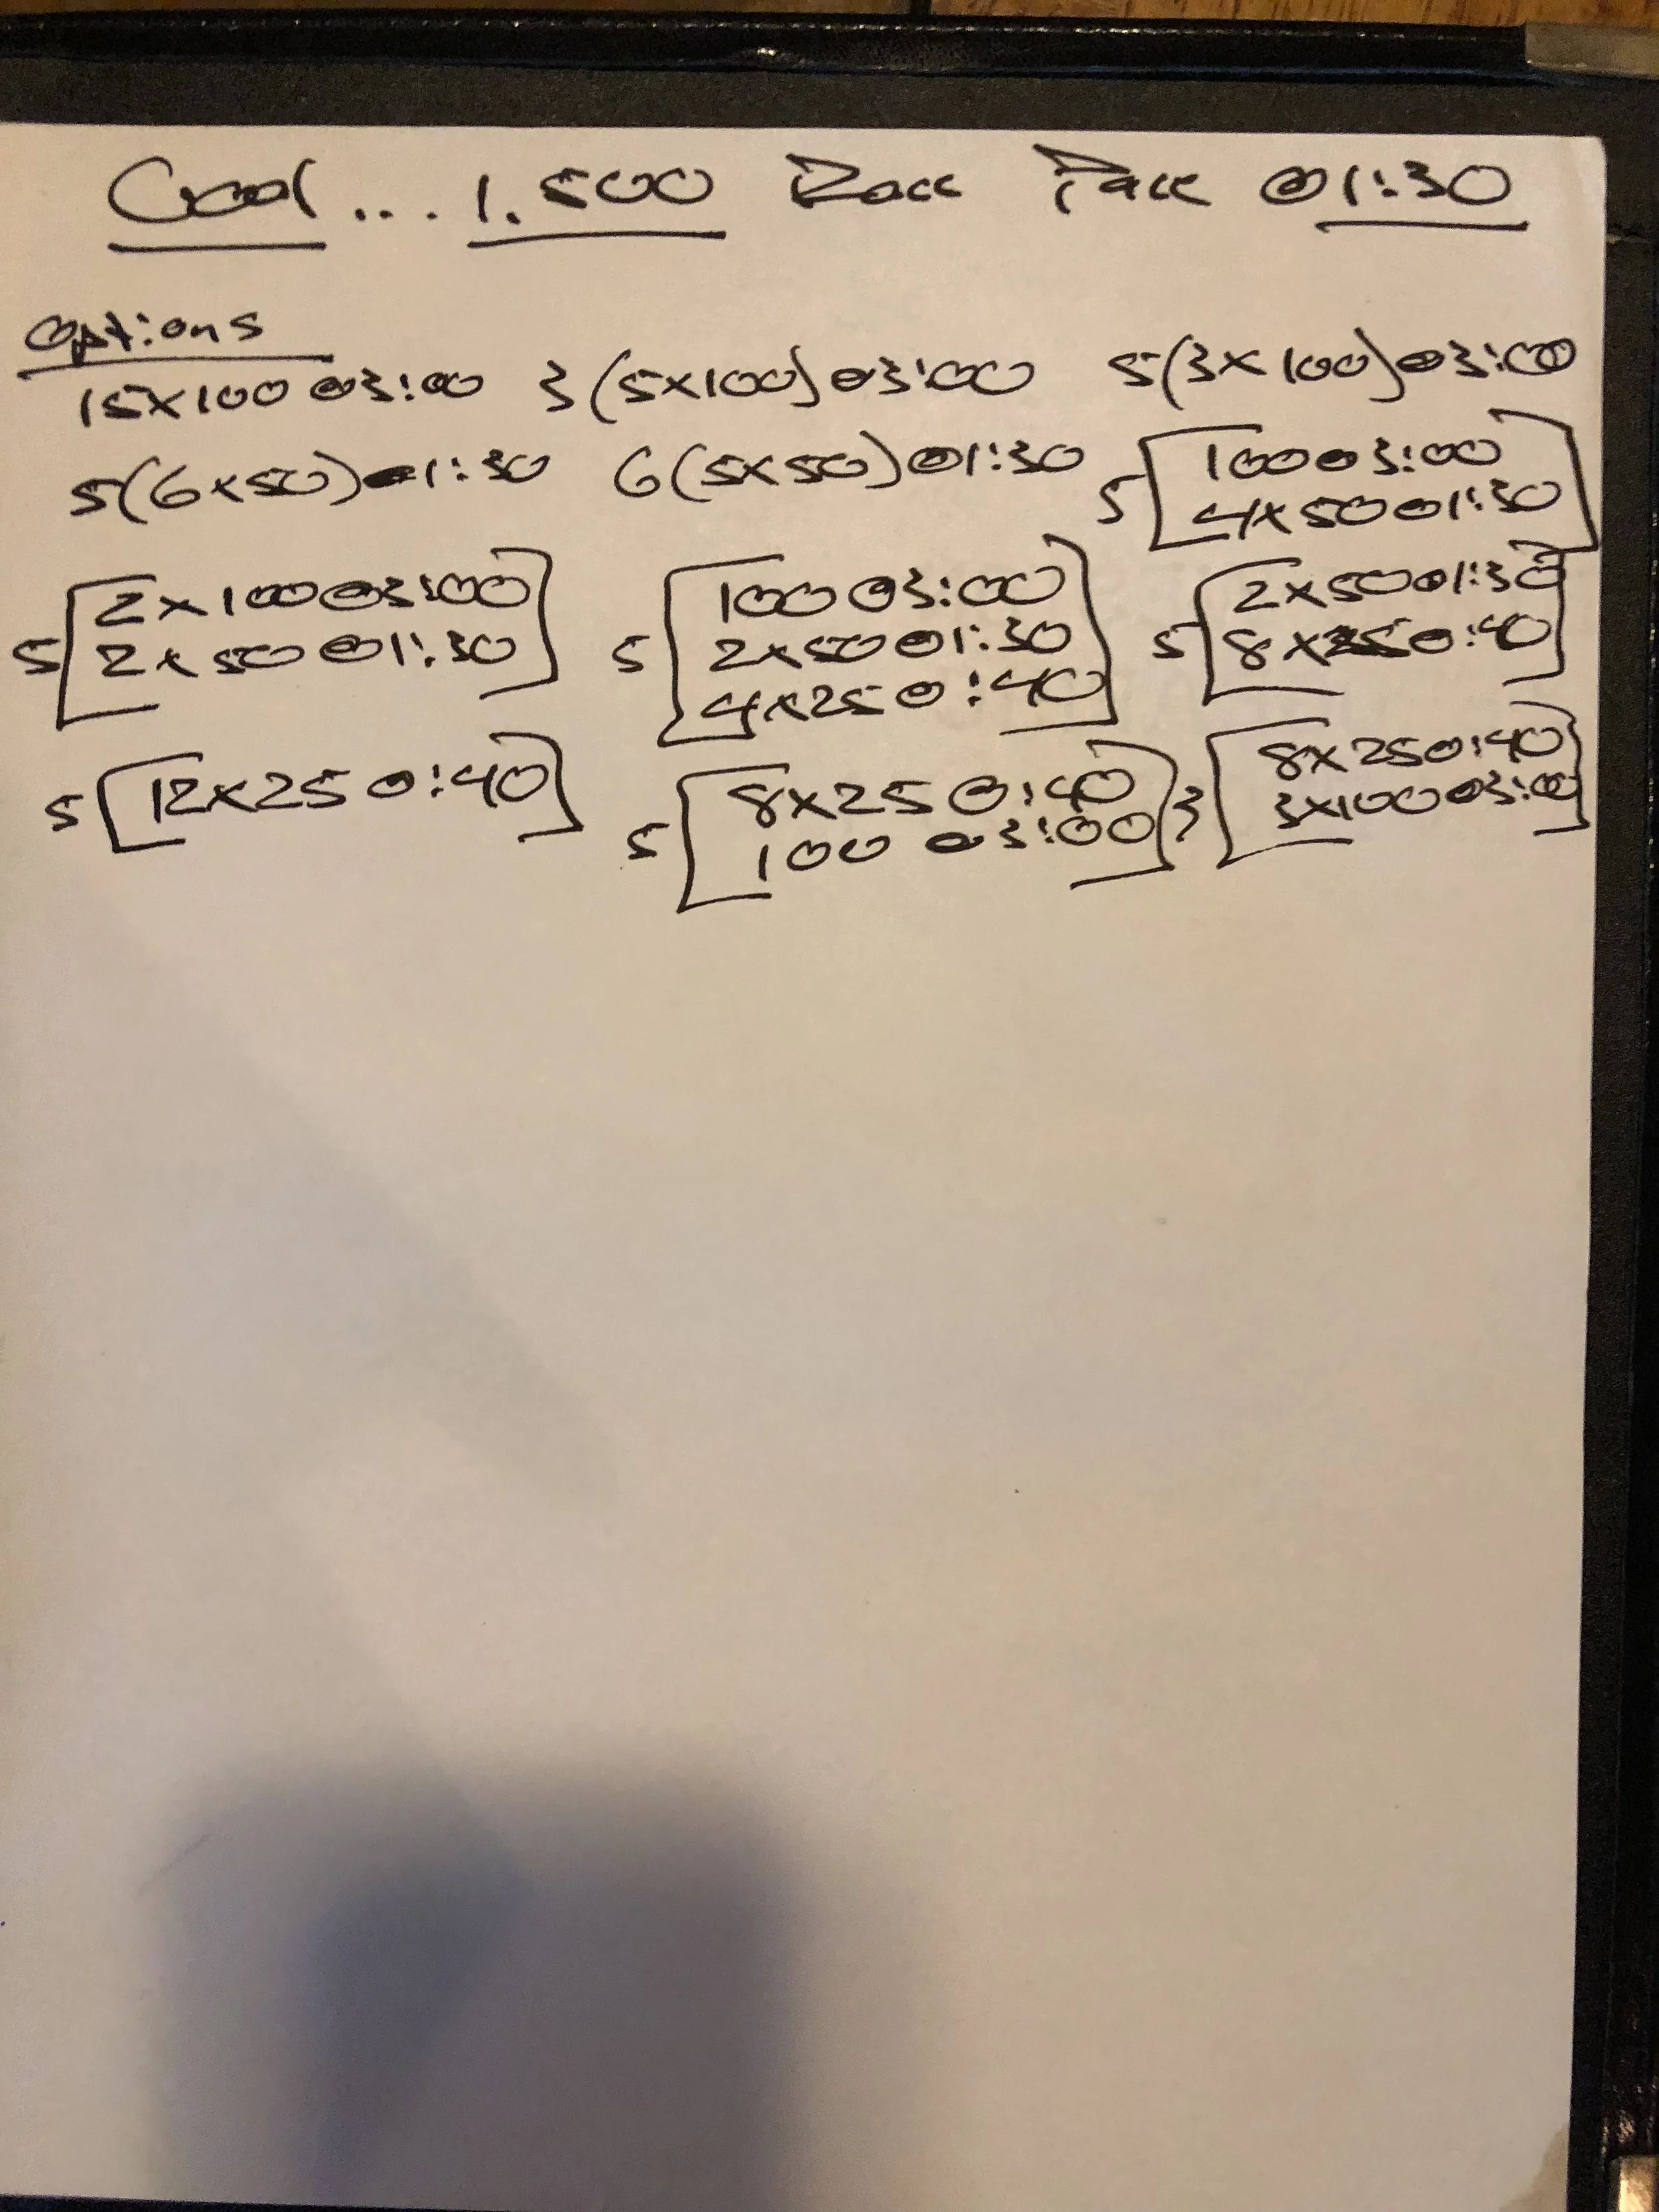 Goal... 1,500 Race Pace @1:30
Options
15x100 @3:00 3(5x100)@3:00 5(3x100)@3:00
5(6x50)@1:30 6(5x50)@1:30 5[100@3:00
4x50@1:30]
5[2x100@3:00
2x50@1:30]
5[100@3:00
2x50@1:30
4x25@:40]
5[2x50@1:30
8x25@:40]
5[12x25@:40]
5[8x25@:40
100 @3:00]
3[8x25@:40
3x100@3:00]